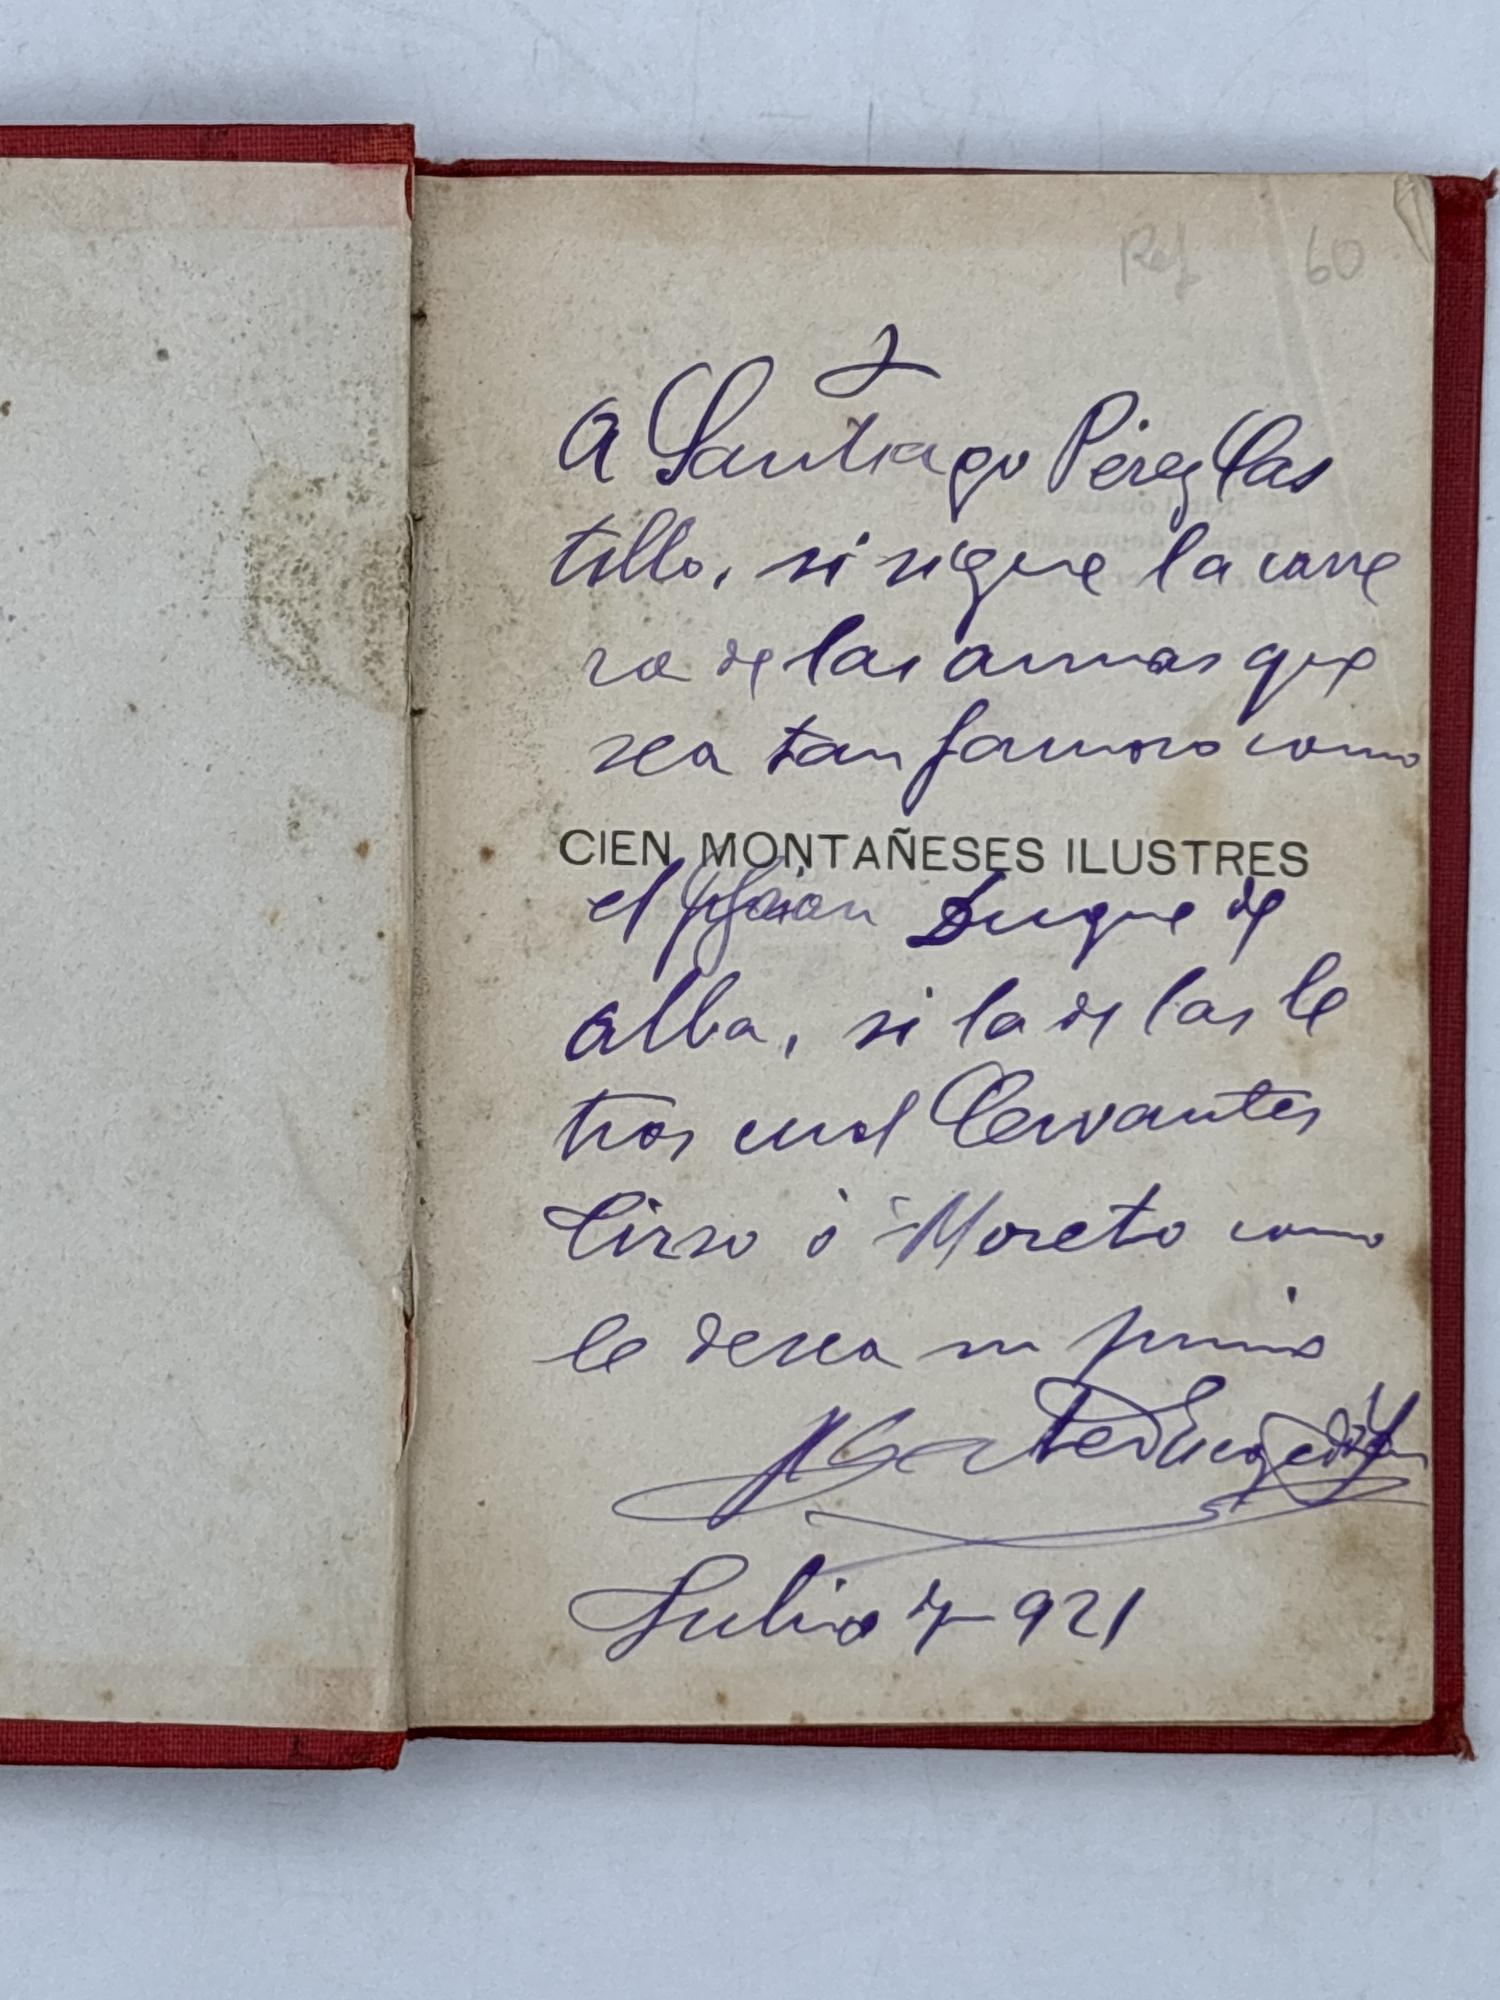 Ref 60
A Santiago Pérez Cas
tillo, si sigue la carre
ra de las armas que
sea tan famoso como
CIEN MONTAÑESES ILUSTRES
el Gran Duque de
Alba, si la de las le
tras cual Cervantes
Tirso ó Moreto como
le desea su primo
Julio de 921